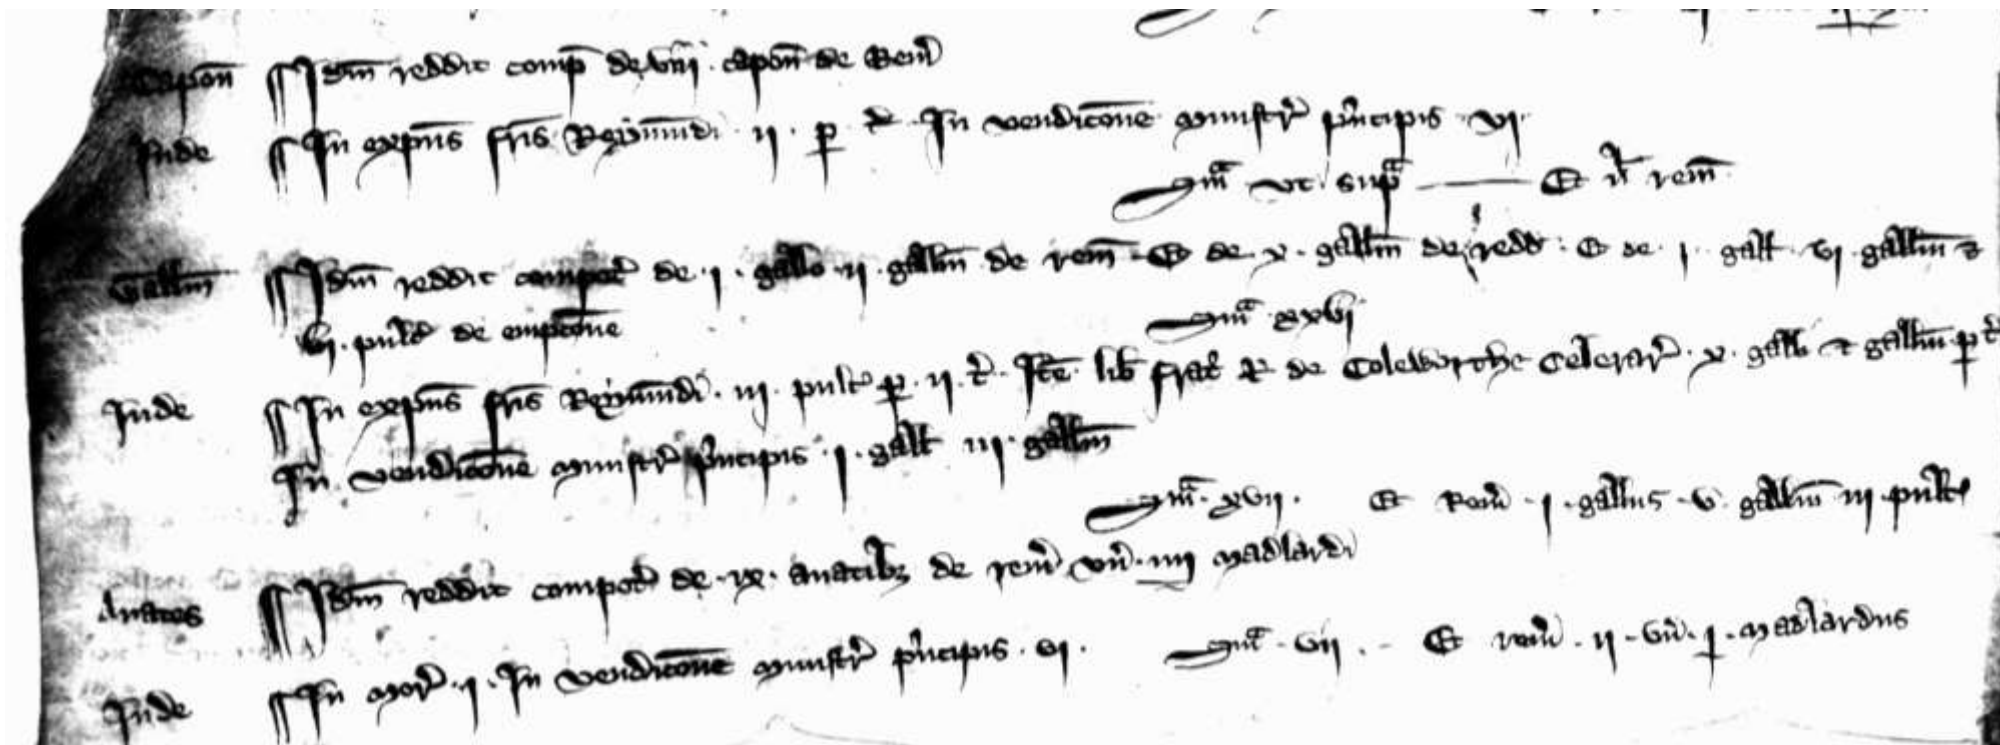 Capon̄ Idm̄ reddit comp̄ de viii. capon̄ de Rem̄
Inde In exp̄nis fr̄is Reymundi. ii. p̄ t̄. In vendicōne ministr̄ p̄ncipis vi.
Sm̄a ut sup̄a Et n̄l rem̄
Gallin̄ Idm̄ reddit compot̄ de .i. gallo .ii. gallin̄ de rem̄ Et de .x. gallin̄ de redd̄. Et de .i. gall̄ vi gallin̄ &
vi. pulc̄ de empcōne
Sm̄a xxvi
Inde In exp̄nis fr̄is Reymundi. iii. pulc̄ p̄ .ii. t̄. Itē lib̄ frat̄ R̄ de Coleworthe Celerar̄ .x. gall̄ & gallin̄ p̄ t̄
In vendicōne ministr̄ p̄ncipis .i. gall̄ iii. gallin̄
Sm̄a. xvii. Et Rem̄ .i. gallus .v. gallin̄ iii pulc̄
Anates Idm̄ reddit compot̄ de .ix. anatibȝ de rem̄ un̄. iiii madlardi
Inde In mor̄ .i. In vendicōne ministr̄ p̄ncipis .vi. Sm̄a vii. Et rem̄ .ii. un̄. i. madlardus